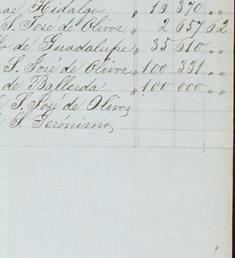 Hidalgo " 19 370 " "
S. José de Olivos " 2 657 62
de Guadalupe " 35 610 " "
S. José de Olivos " 100 331 " "
de Ballerda " 100 000 " "
S. José de Olivos
S. Gerónimo,